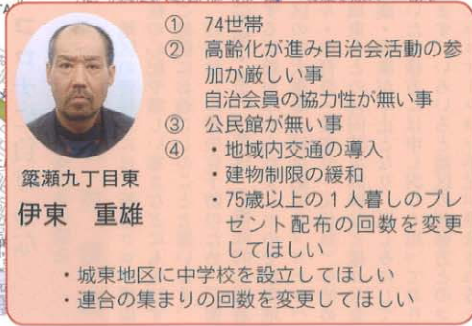 ① 74世帯
② 高齢化が進み自治会活動の参
加が厳しい事
自治会員の協力性が無い事
③ 公民館が無い事
④ ・地域内交通の導入
・建物制限の緩和
・75歳以上の1人暮しのプレ
ゼント配布の回数を変更
してほしい
・城東地区に中学校を設立してほしい
・連合の集まりの回数を変更してほしい
簗瀬九丁目東
伊東 重雄